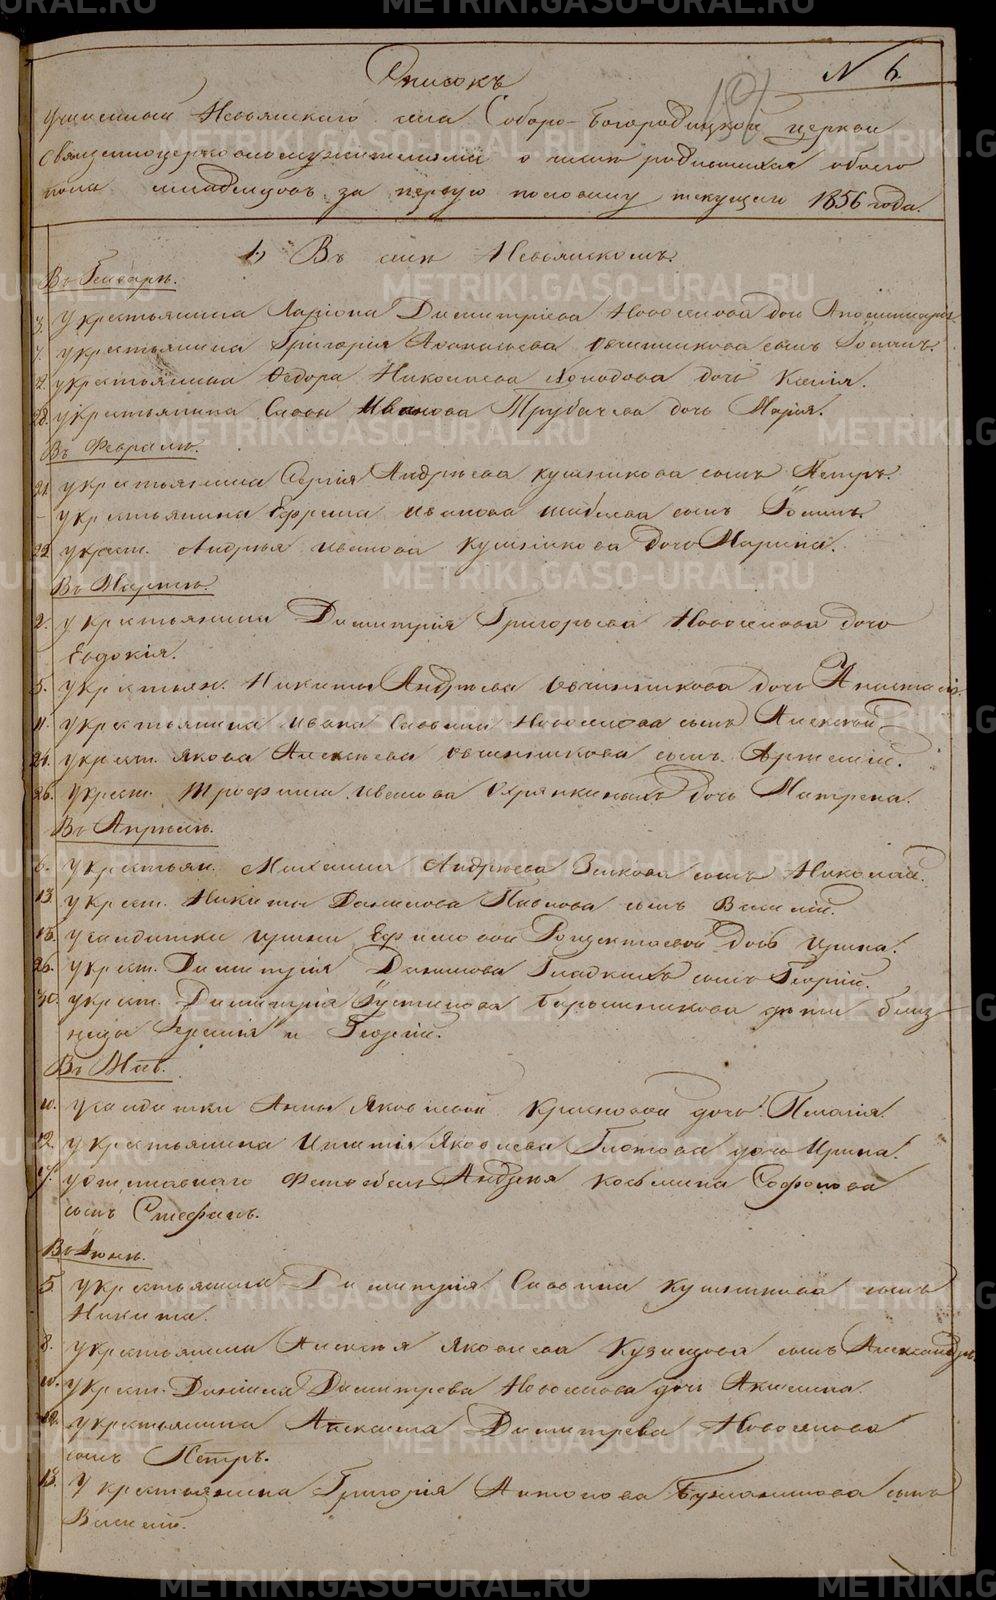 Списокъ
N 6.
учиненный Невьянскаго села Соборо-Богородицкой церкви
священноцерковнослужителями о числѣ родившихся обоего
пола младенцовъ за первую половину текущаго 1856 года.
1.) Въ селѣ Невьянскомъ.
Въ Генварѣ.
3. У крестьянина Ларіона Димитріева Новоселова дочь Аполлинарія.
7. у крестьянина Григорія Аѳанасьева Овчинникова сынъ Іоаннъ.
у крестьянина Ѳедора Николаева дочь Ксенія.
28. у крестьянина Саввы Иванова Трубачева дочь Марія.
Въ Февралѣ.
21. у крестьянина Сергія Андреева Кушникова сынъ Петръ.
– у крестьянина Ефрема Иванова сынъ Іоаннъ.
22. у крест. Андрея Иванова Кушникова дочь Марина.
Въ Мартѣ.
2. у крестьянина Димитрія Григорьева Новоселова дочь
Евдокія.
5. у крестьян. Никиты Андреева Овчинникова дочь Анастасія.
11. у крестьянина Ивана Саввина Новоселова сынъ Алексѣй.
21. у крест. Якова Алексѣева Овчинникова сынъ Артемій.
26. у крест. Трофима Иванова дочь Матрена.
Въ Апрѣлѣ.
6. у крестьян. Михаила Андреева сынъ Николай.
13. у крест. Никиты Данилова Павлова сынъ Василій.
15. у солдатки Ирины Ефимовой дочь Ирина.
26. у крест. Димитрія Данилова Гладкихъ сынъ Георгій.
30. у крест. Димитрія Іустинова дѣти близ-
неца и Георгій.
Въ Маѣ.
10. у солдатки Анны Яковлевой Красновой дочь Пелагія.
12. у крестьянина Игнатія Яковлева Глотова дочь Ирина.
17. у отставнаго Андрея Косьмина Софонова
сынъ Стефанъ.
Въ Іюнѣ.
5. у крестьянина Димитрія Саввина Кушникова сынъ
Никита.
8. у крестьянина Алексѣя Яковлева Кузнецова сынъ Александръ.
10. у крест. Даніила Димитрева Новоселова дочь Акилина.
12. у крестьянина Димитрева Новоселова
сынъ Петръ.
13. У крестьянина Григорія Антонова сынъ
Василій.
METRIKI.GASO-URAL.RU